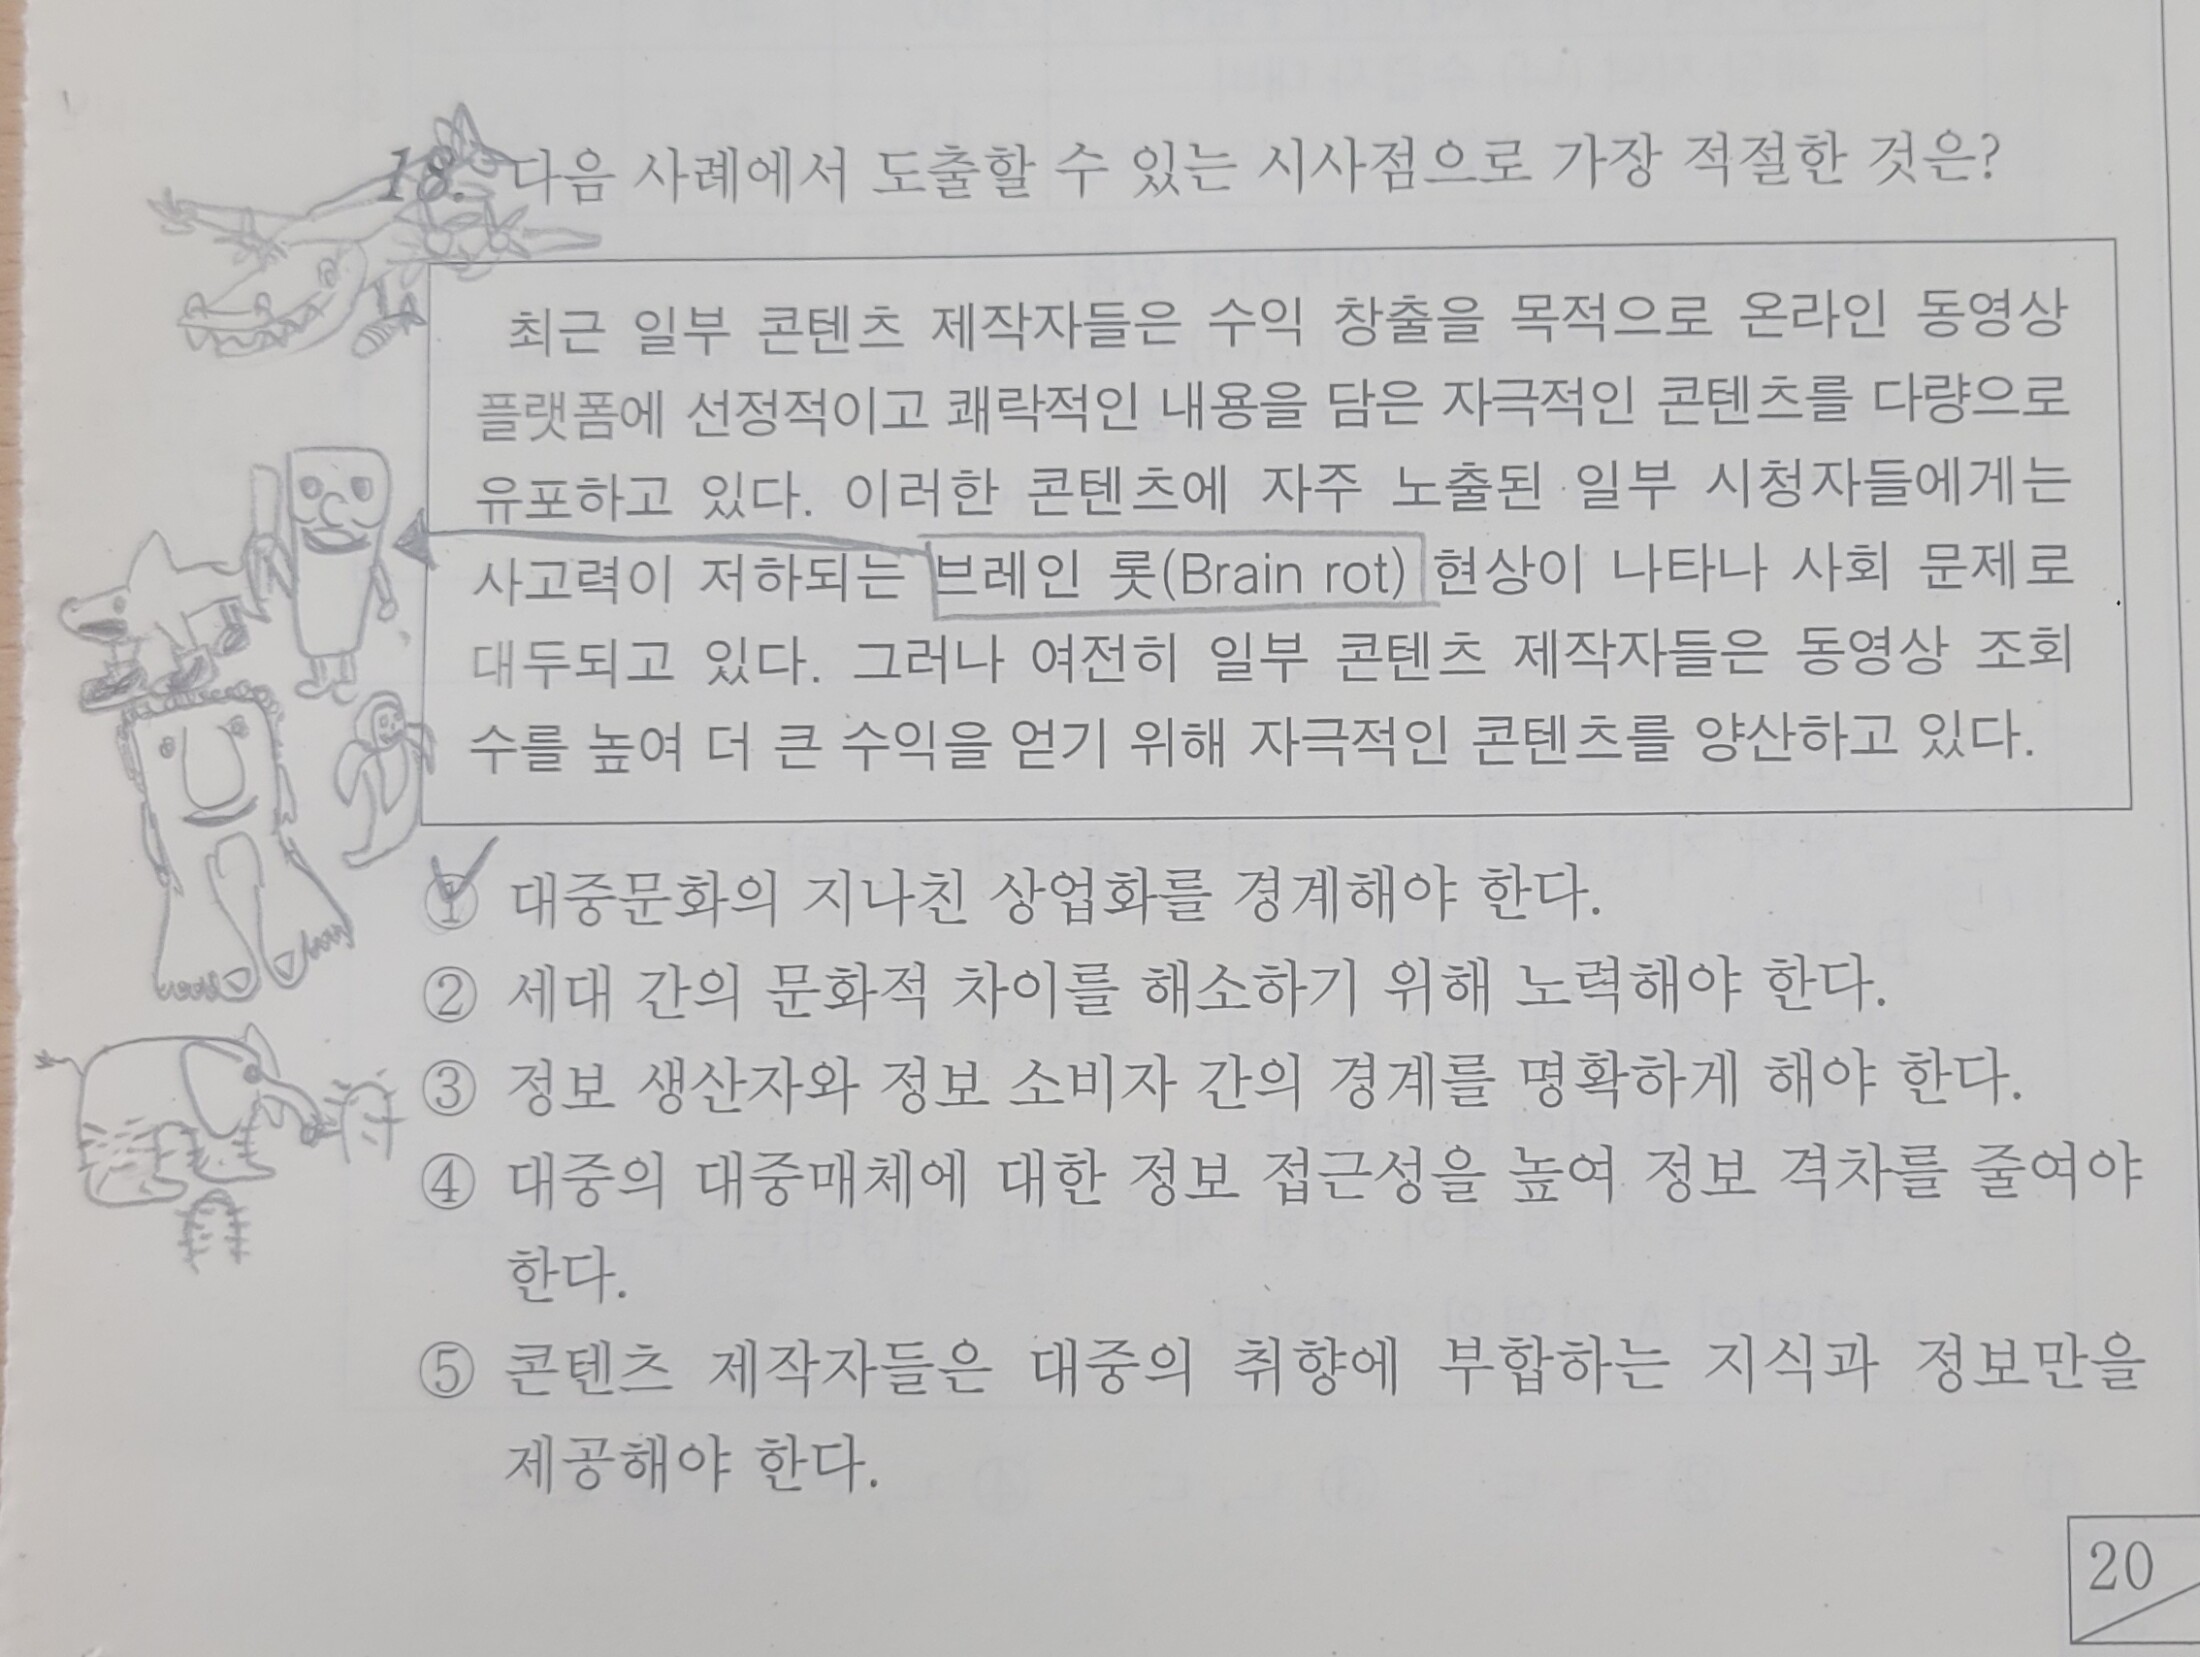 18. 다음 사례에서 도출할 수 있는 시사점으로 가장 적절한 것은?
최근 일부 콘텐츠 제작자들은 수익 창출을 목적으로 온라인 동영상
플랫폼에 선정적이고 쾌락적인 내용을 담은 자극적인 콘텐츠를 다량으로
유포하고 있다. 이러한 콘텐츠에 자주 노출된 일부 시청자들에게는
사고력이 저하되는 브레인 롯(Brain rot) 현상이 나타나 사회 문제로
대두되고 있다. 그러나 여전히 일부 콘텐츠 제작자들은 동영상 조회
수를 높여 더 큰 수익을 얻기 위해 자극적인 콘텐츠를 양산하고 있다.
① 대중문화의 지나친 상업화를 경계해야 한다.
② 세대 간의 문화적 차이를 해소하기 위해 노력해야 한다.
③ 정보 생산자와 정보 소비자 간의 경계를 명확하게 해야 한다.
④ 대중의 대중매체에 대한 정보 접근성을 높여 정보 격차를 줄여야
한다.
⑤ 콘텐츠 제작자들은 대중의 취향에 부합하는 지식과 정보만을
제공해야 한다.
20